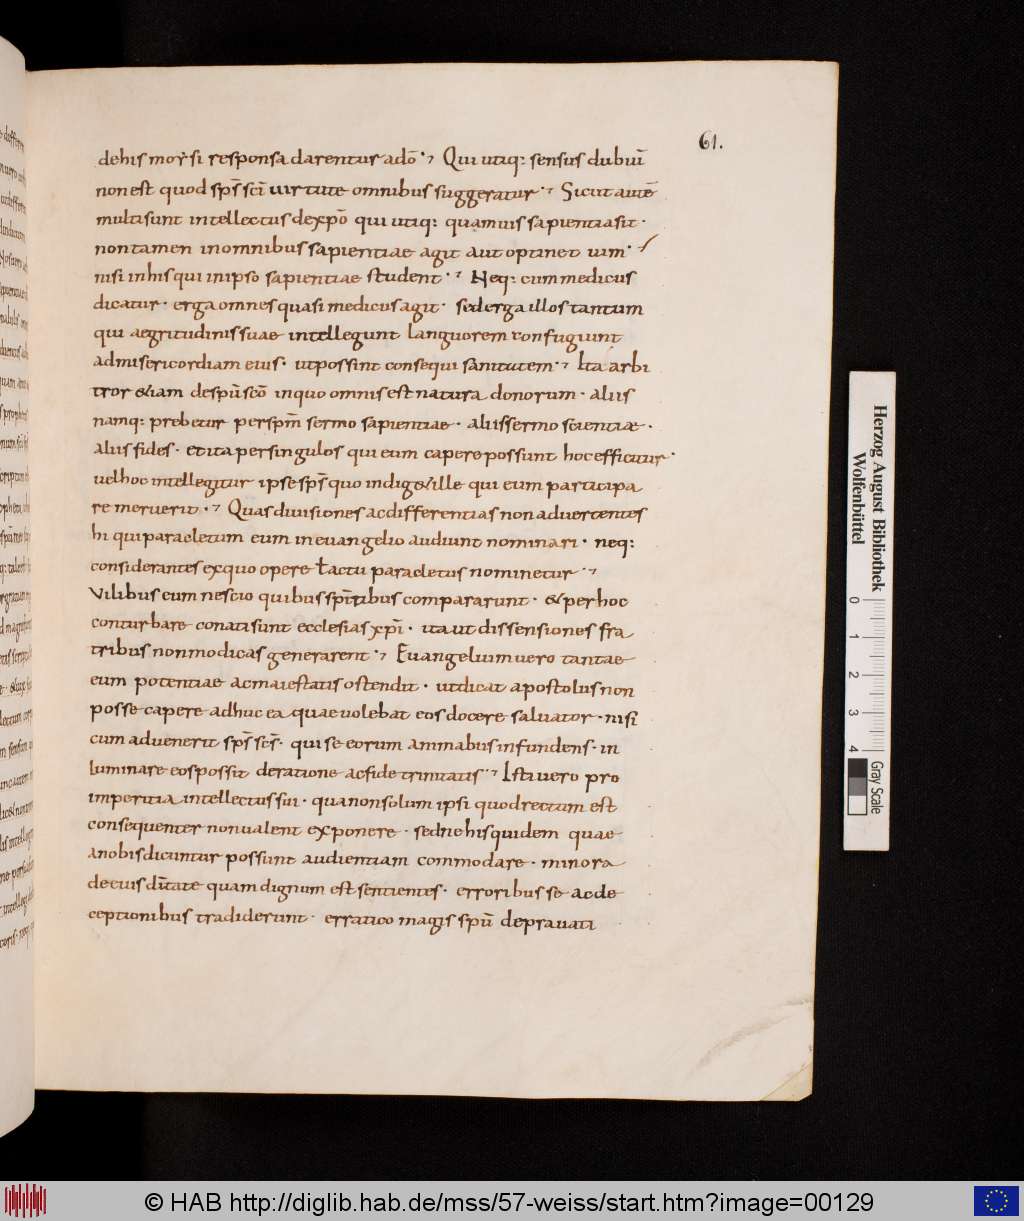 61.
dehis moysi responsa darentur adõ. Qui utiq: sensus dubiũ
non est quod sp̃s sc̃i uirtute omnibus suggeratur. Sicut autẽ
multi sunt intellectus dexp̃o qui utiq: quamuis sapientia sit.
non tamen inomnibus sapientiae agit aut optinet uim.
nisi inhis qui inipso sapientiae student. Neq: cum medicus
dicatur. erga omnes quasi medicus agit. sed erga illos tantum
qui aegritudinis suae intellegunt languorem confugiunt
ad misericordiam eius. ut possint consequi sanitatem. Ita arbi
tror &iam desp̃u sc̃o inquo omnis est natura donorum. aliis
namq: prebetur persp̃m sermo sapientiae. aliis sermo scientiae.
aliis fides. et ita persingulos qui eum capere possunt hoc efficitur.
uel hoc intellegitur ipse sp̃s quo indig& ille qui eum participa
re meruerit. Quas diuisiones ac differentias non aduertentes
hi qui paracletum eum in euangelio audiunt nominari. neq:
considerantes ex quo opere t actu paracletus nominetur
Vilibus eum nescio quibus sp̃itibus compararunt. & per hoc
conturbare conati sunt ecclesias xp̃i. ita ut dissensiones fra
tribus non modicas generarent. Euangelium uero tantae
eum potentiae ac maiestatis ostendit. ut dicat apostolus non
posse capere adhuc ea quae uolebat eos docere saluator. nisi
cum aduenerit sp̃s sc̃s. qui se eorum animabus infundens. in
luminare eos possit deratione ac fide trinitatis. Isti uero pro
imperitia intellectus sui. qua non solum ipsi quod rectum est
consequenter non ualent exponere. sed ne his quidem quae
a nobis dicuntur possunt audientiam commodare. minora
de eius di͂tate quam dignum est sentientes. erroribus se ac de
ceptionibus tradiderunt. erratico magis sp̃u deprauati
Herzog August Bibliothek
Wolfenbüttel
0 1 2 3 4
Gray Scale
© HAB http://diglib.hab.de/mss/57-weiss/start.htm?image=00129